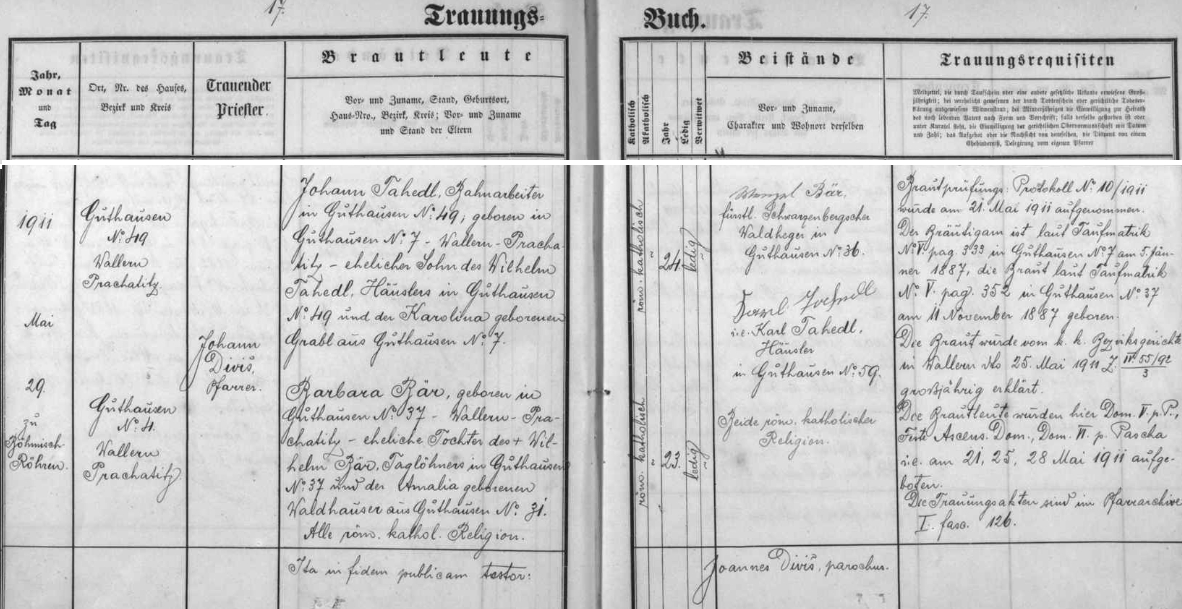 17.
Trauungs-
Jahr,
Monat
und
Tag
Ort, Nr. des Hauses,
Bezirk und Kreis
Trauender
Priester.
Brautleute
Vor- und Zuname, Stand, Geburtsort,
Haus-Nro., Bezirk, Kreis; Vor- und Zuname
und Stand der Eltern
1911
Mai
29.
zu
Böhmisch
Röhren.
Guthausen
No 49
Wallern
Prachatitz.
Guthausen
No 4.
Wallern
Prachatitz
Johann
Diviš,
Pfarrer.
Johann Tahedl, Bahnarbeiter
in Guthausen No 49; geboren in
Guthausen No 7 - Wallern - Pracha-
titz - ehelicher Sohn des Wilhelm
Tahedl, Häuslers in Guthausen
No 49 und der Karolina geborenen
Grabl aus Guthausen No 7.
Barbara Bär, geboren in
Guthausen No 37 - Wallern - Pra-
chatitz - eheliche Tochter des + Wil-
helm Bär, Taglöhners in Guthausen
No 37 und der Amalia geborenen
Waldhauser aus Guthausen No 31.
Alle röm. kathol. Religion.
Ita in fidem publicam testor:
17.
Buch.
Katholisch
Akatholisch
Jahr
Ledig
Verwitwet
Beistände
Vor- und Zuname,
Charakter und Wohnort derselben
Trauungsrequisiten
röm. katholisch
24
ledig
röm. katholisch
23.
ledig
Wenzl Bär,
fürstl. Schwarzenbergscher
Waldheger in
Guthausen No 36.
Karl Tahedl
i.e. Karl Tahedl,
Häusler
in Guthausen No 59.
Beide röm. katholischer
Religion.
Joannes Diviš, parochus.
Brautprüfungs-Protokoll No 10/1911
wurde am 21. Mai 1911 aufgenommen.
Der Bräutigam ist laut Taufmatrik
No V. pag. 333 in Guthausen No 7 am 5. Jän-
ner 1887, die Braut laut Taufmatrik
No V. pag. 352 in Guthausen No 37
am 11 November 1887 geboren.
Die Braut wurde vom k. k. Bezirksgerichte
in Wallern dto 25. Mai 1911 Z. III 55/92
3
grossjährig erklärt.
Die Brautleute wurden hier Dom. V. p. P.,
Festo Ascens. Dom., Dom. VI. p. Pascha
i.e. am 21, 25, 28 Mai 1911 aufge-
boten.
Die Trauungsakten sind im Pfarrarchive
I. fasc. 126.